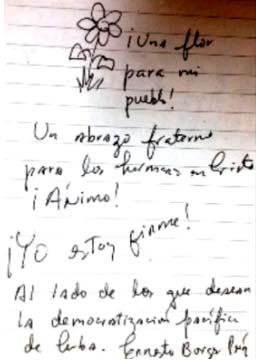 ¡Una flor
para mi
pueblo!
Un abrazo fraterno
para los hermanos en Cristo
¡Ánimo!
¡Yo estoy firme!
Al lado de los que desean
la democratización pacífica
de Cuba. Ernesto Borges